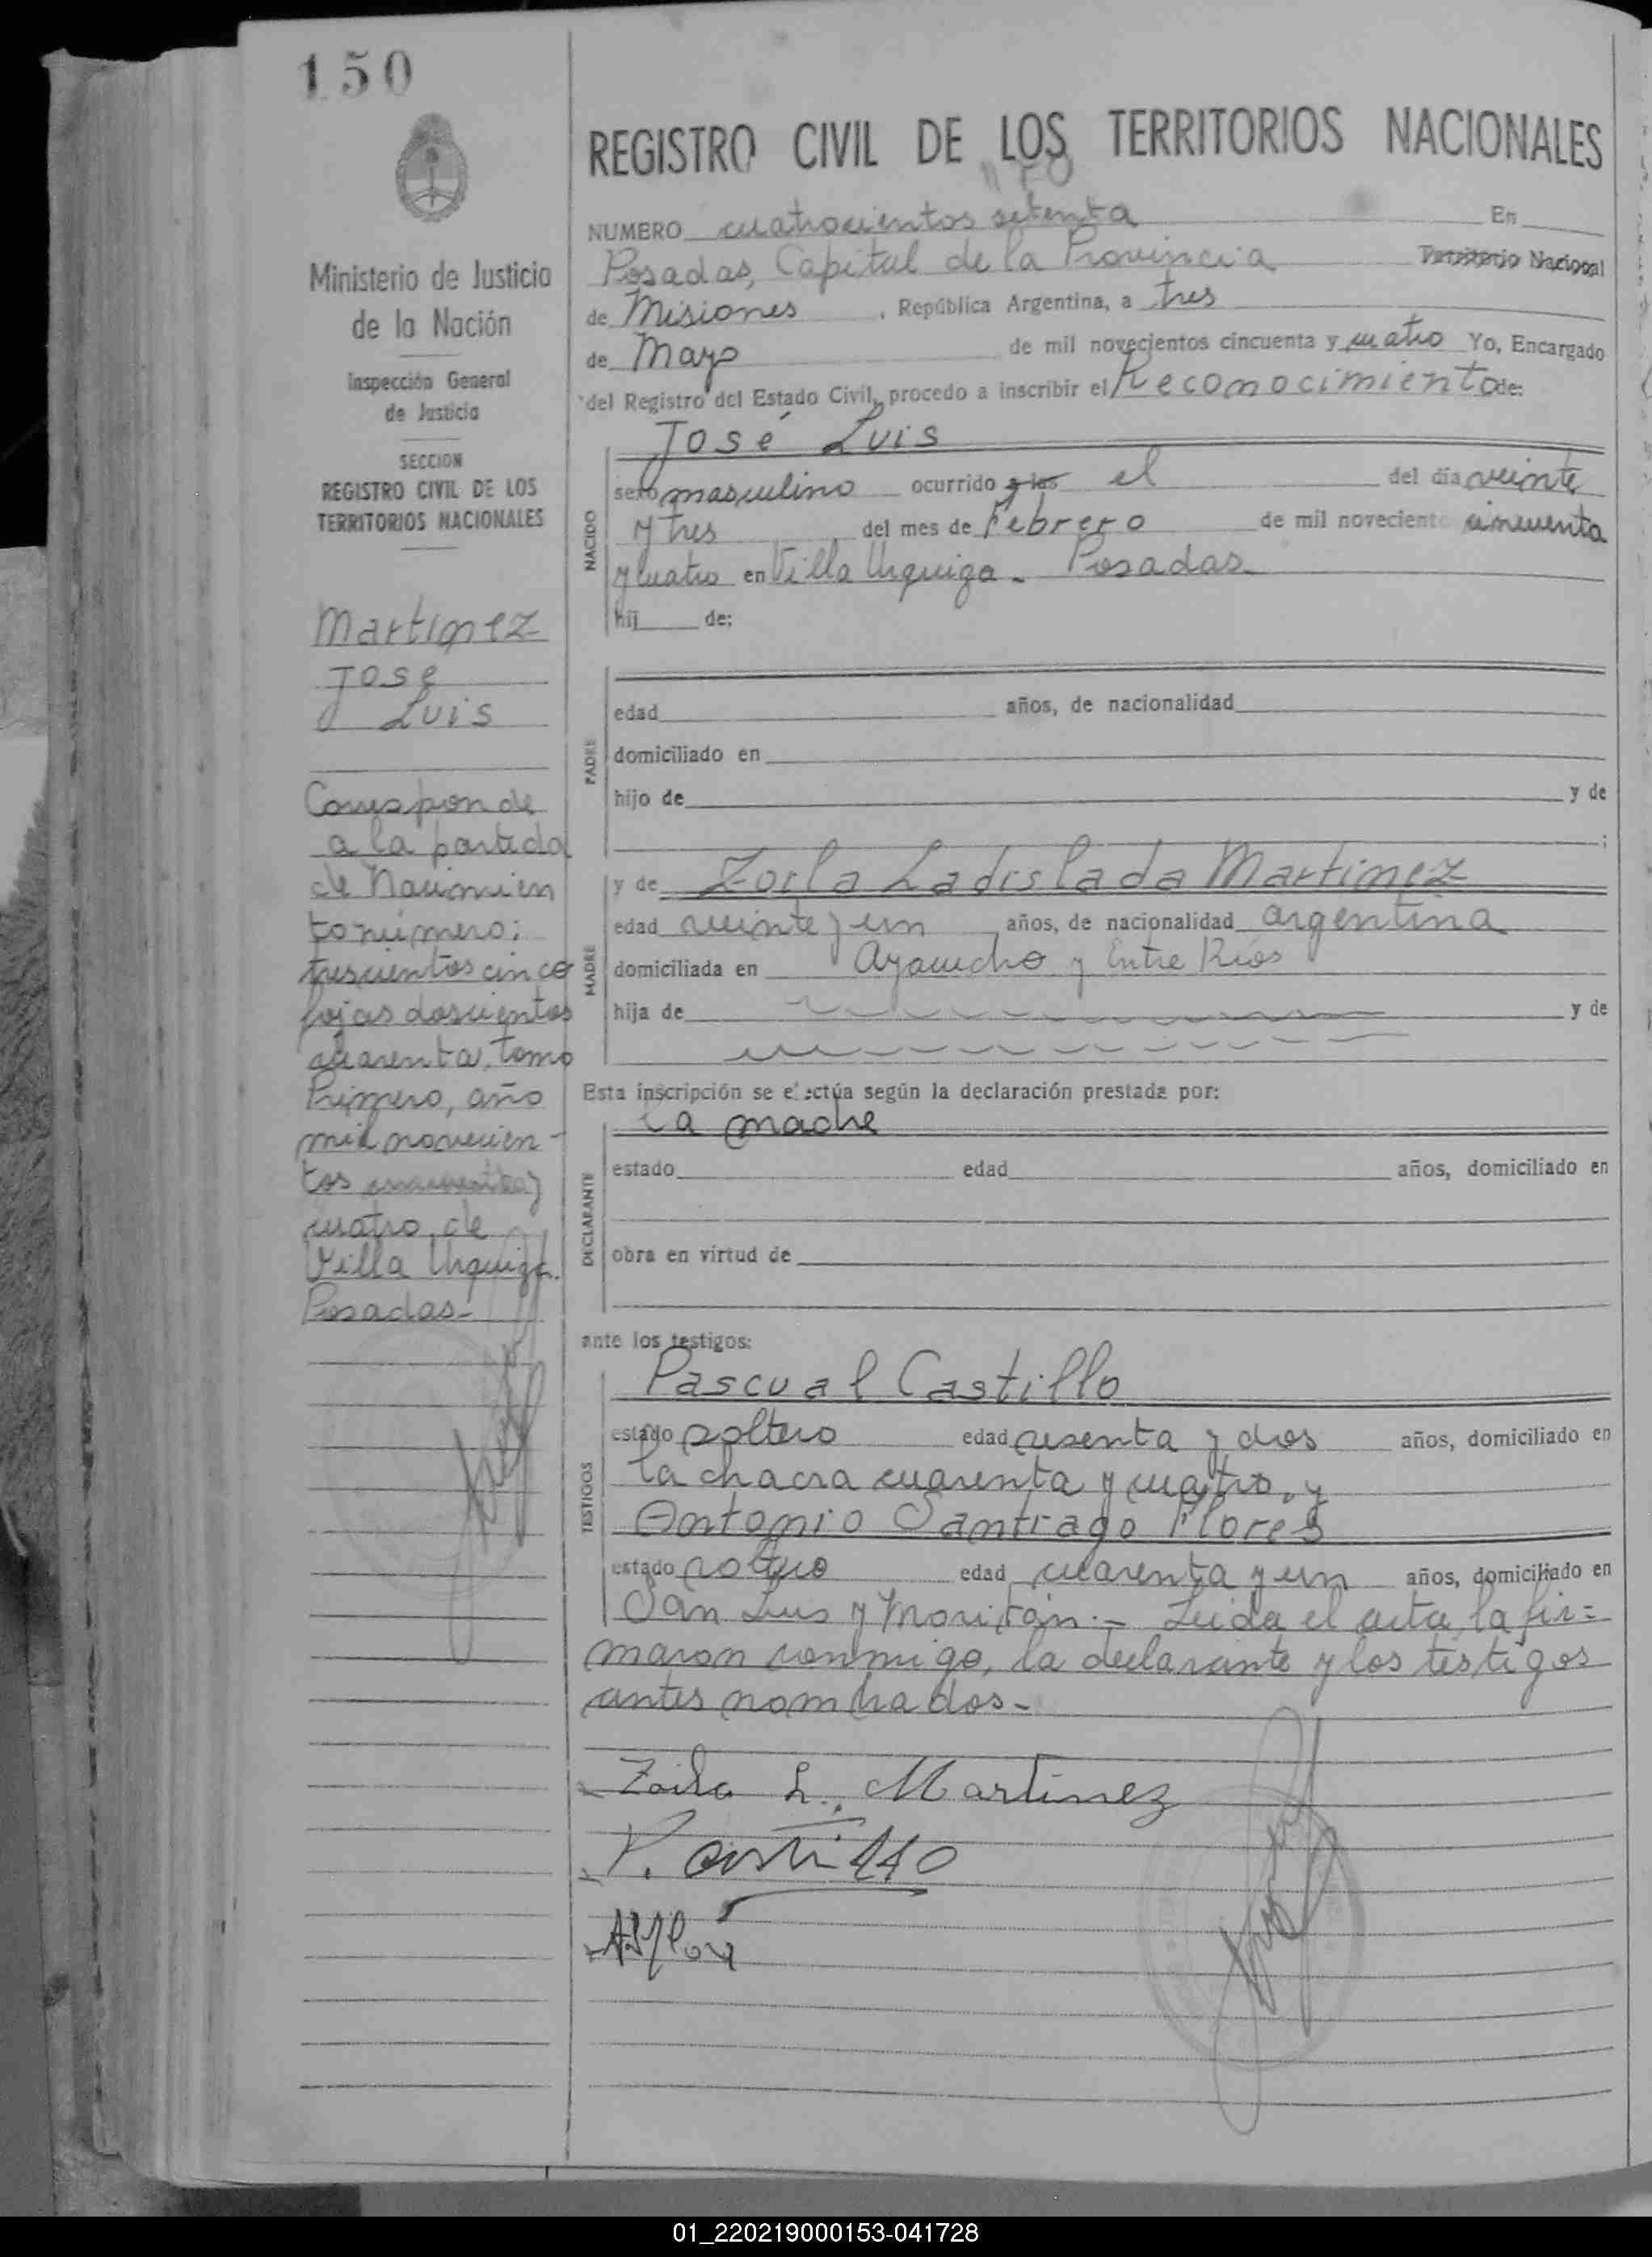 150
REGISTRO CIVIL DE LOS TERRITORIOS NACIONALES
470
NUMERO cuatrocientos setenta En
Posadas, Capital de la Provincia Territorio Nacional
de Misiones, República Argentina, a tres
de Mayo de mil novecientos cincuenta y cuatro Yo, Encargado
del Registro del Estado Civil, procedo a inscribir el Reconocimiento de:
José Luis
sexo masculino ocurrido a las el del día veinte
y tres del mes de Febrero de mil noveciento cincuenta
y cuatro en Villa Urquiza - Posadas
hij de:
NACIDO
edad años, de nacionalidad
domiciliado en
hijo de y de
;
PADRE
y de Zoila Ladislada Martinez
edad veinte y un años, de nacionalidad argentina
domiciliada en Ayacucho y Entre Ríos
hija de y de
MADRE
Esta inscripción se efectúa según la declaración prestada por:
la madre
estado edad años, domiciliado en
obra en virtud de
DECLARANTE
ante los testigos:
Pascual Castillo
estado soltero edad sesenta y dos años, domiciliado en
la chacra cuarenta y cuatro, y
Antonio Santiago Flores
estado soltero edad cuarenta y un años, domiciliado en
San Luis y Moritán.- Leida el acta, la fir=
TESTIGOS
maron conmigo, la declarante y los testigos
antes nombrados-
Zoila L. Martinez
P. Castillo
Ministerio de Justicia
de la Nación
Inspección General
de Justicia
SECCION
REGISTRO CIVIL DE LOS
TERRITORIOS NACIONALES
Martinez
José
Luis
Corresponde
a la partida
de Nacimien
to número:
trescientos cinco
fojas doscientos
cuarenta, tomo
Primero, año
mil novecien-
tos cincuenta y
cuatro, de
Villa Urquiza.
Posadas-
01_220219000153-041728